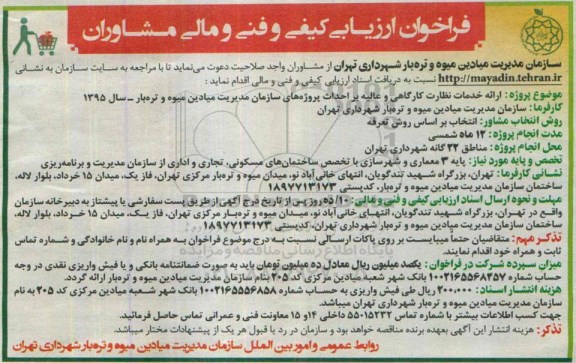 فراخوان ارزیابی کیفی و فنی و مالی مشاوران
سازمان مدیریت میادین میوه و تره‌بار شهرداری تهران از مشاوران واجد صلاحیت دعوت می‌نماید تا با مراجعه به سایت سازمان به نشانی
http://mayadin.tehran.ir نسبت به دریافت اسناد ارزیابی کیفی و فنی و مالی اقدام نماید :
موضوع پروژه : ارائه خدمات نظارت کارگاهی و عالیه بر احداث پروژه‌های سازمان مدیریت میادین میوه و تره‌بار ـ سال ۱۳۹۵
کارفرما: سازمان مدیریت میادین میوه و تره‌بار شهرداری تهران
روش انتخاب مشاور: انتخاب بر اساس روش تعرفه
مدت انجام پروژه : ۱۲ ماه شمسی
محل انجام پروژه : مناطق ۲۲ گانه شهرداری تهران
تخصص و پایه مورد نیاز: پایه ۳ معماری و شهرسازی با تخصص ساختمان‌های مسکونی، تجاری و اداری از سازمان مدیریت و برنامه‌ریزی
نشانی کارفرما: تهران، بزرگراه شهید تندگویان، انتهای خانی آباد نو، میدان میوه و تره‌بار مرکزی تهران، فاز یک، میدان ۱۵ خرداد، بلوار لاله،
ساختمان سازمان مدیریت میادین میوه و تره‌بار، کدپستی ۱۸۹۷۷۱۳۱۷۳
مهلت و نحوه ارسال اسناد ارزیابی کیفی و فنی و مالی : ۱۰/ده روز پس از تاریخ درج آگهی از طریق پست سفارشی یا پیشتاز به دبیرخانه سازمان
واقع در تهران، بزرگراه شهید تندگویان، انتهای خانی آباد نو، میدان میوه و تره‌بار مرکزی تهران، فاز یک، میدان ۱۵ خرداد، بلوار لاله،
ساختمان سازمان مدیریت میادین میوه و تره‌بار شهرداری تهران، کدپستی ۱۸۹۷۷۱۳۱۷۳
تذکر مهم : متقاضیان حتماً میبایست بر روی پاکات ارسالی نسبت به درج موضوع فراخوان به همراه نام و نام خانوادگی و شماره تماس
ثابت و همراه خود اقدام نمایند.
میزان سپرده شرکت در فراخوان : یکصد میلیون ریال معادل ده میلیون تومان باید به صورت ضمانتنامه بانکی و یا فیش واریزی نقدی در وجه
حساب شماره ۱۰۰۲۱۶۵۵۶۸۴۵۷ بانک شهر شعبه میادین مرکزی کد ۲۰۵ بنام سازمان مدیریت میادین میوه و تره‌بار ارائه گردد.
هزینه انتشار اسناد: ۲۰۰,۰۰۰ ریال طی فیش واریزی به حساب شماره ۱۰۰۲۱۶۵۵۵۶۸۵۸ بانک شهر شعبه میادین مرکزی کد ۲۰۵ به نام
سازمان مدیریت میادین میوه و تره‌بار شهرداری تهران میباشد.
جهت کسب اطلاعات بیشتر با شماره تماس ۵۵۰۱۵۲۳۲ داخلی ۱۴و ۱۵ معاونت فنی و عمرانی تماس حاصل فرمائید.
تذکر: هزینه انتشار این آگهی بعهده برنده مناقصه خواهد بود و سازمان در رد یا قبول هر یک از پیشنهادات مختار میباشد.
روابط عمومی و امور بین الملل سازمان مدیریت میادین میوه و تره‌بار شهرداری تهران